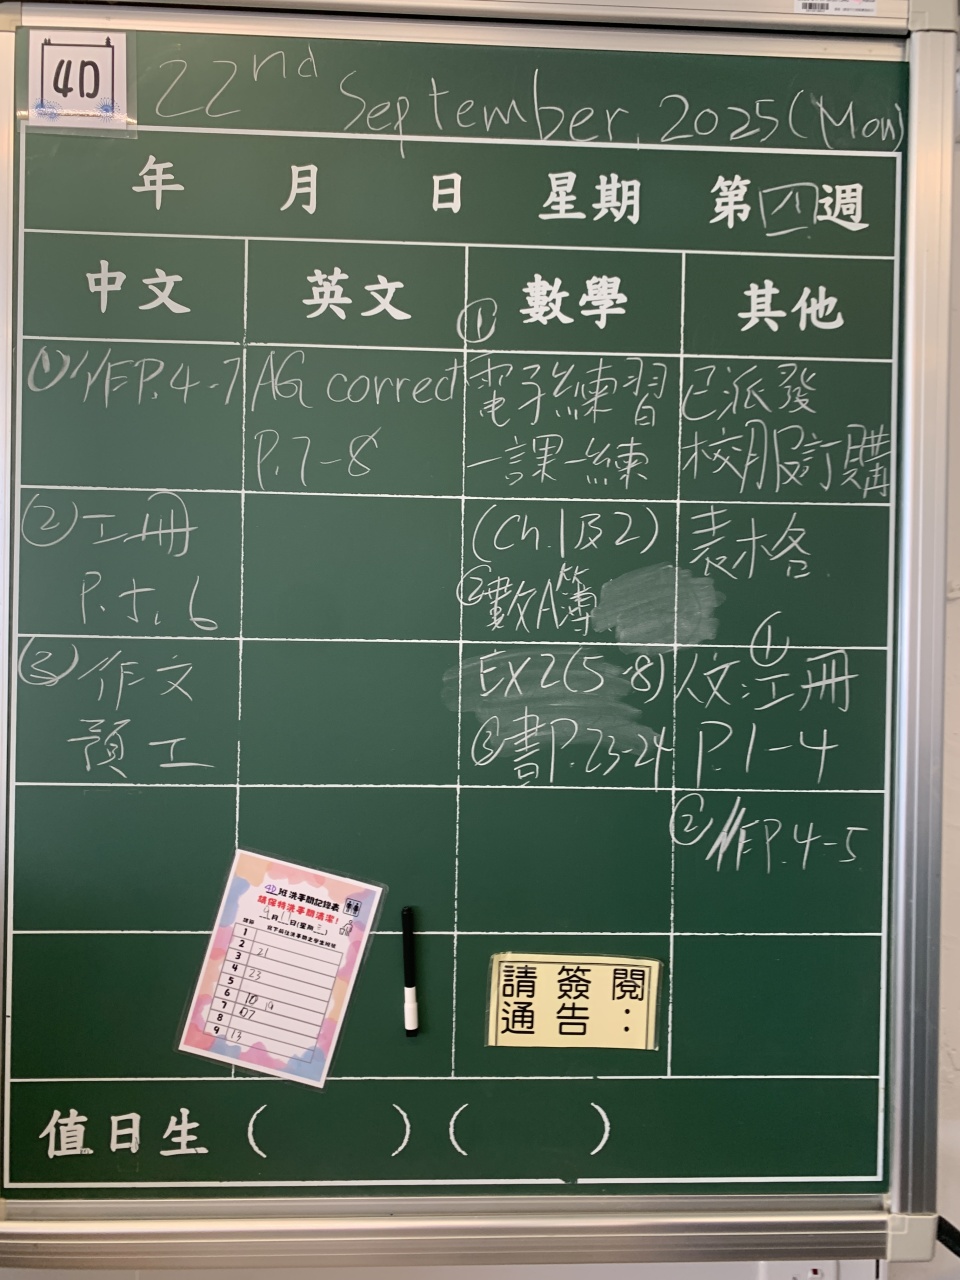 4D
22nd September, 2025 (Mon)
年 月 日 星期 第四週
中文
①作P.4-7
②工冊
P.5, 6
③作文
預工
英文
AG correct
P.7-8
數學
①
電子練習
一課一練
(Ch.1及2)
②數A簿
EX2(5-8)
③書P.23-24
其他
已派發
校服訂購
表格
①
人文:工冊
P.1-4
②作P.4-5
4D班洗手間記錄表
請保持洗手間清潔!
1
2 21
3
4 23
5
6 10 19
7 07
8
9 13
請簽閱
通告:
值日生 ( ) ( )